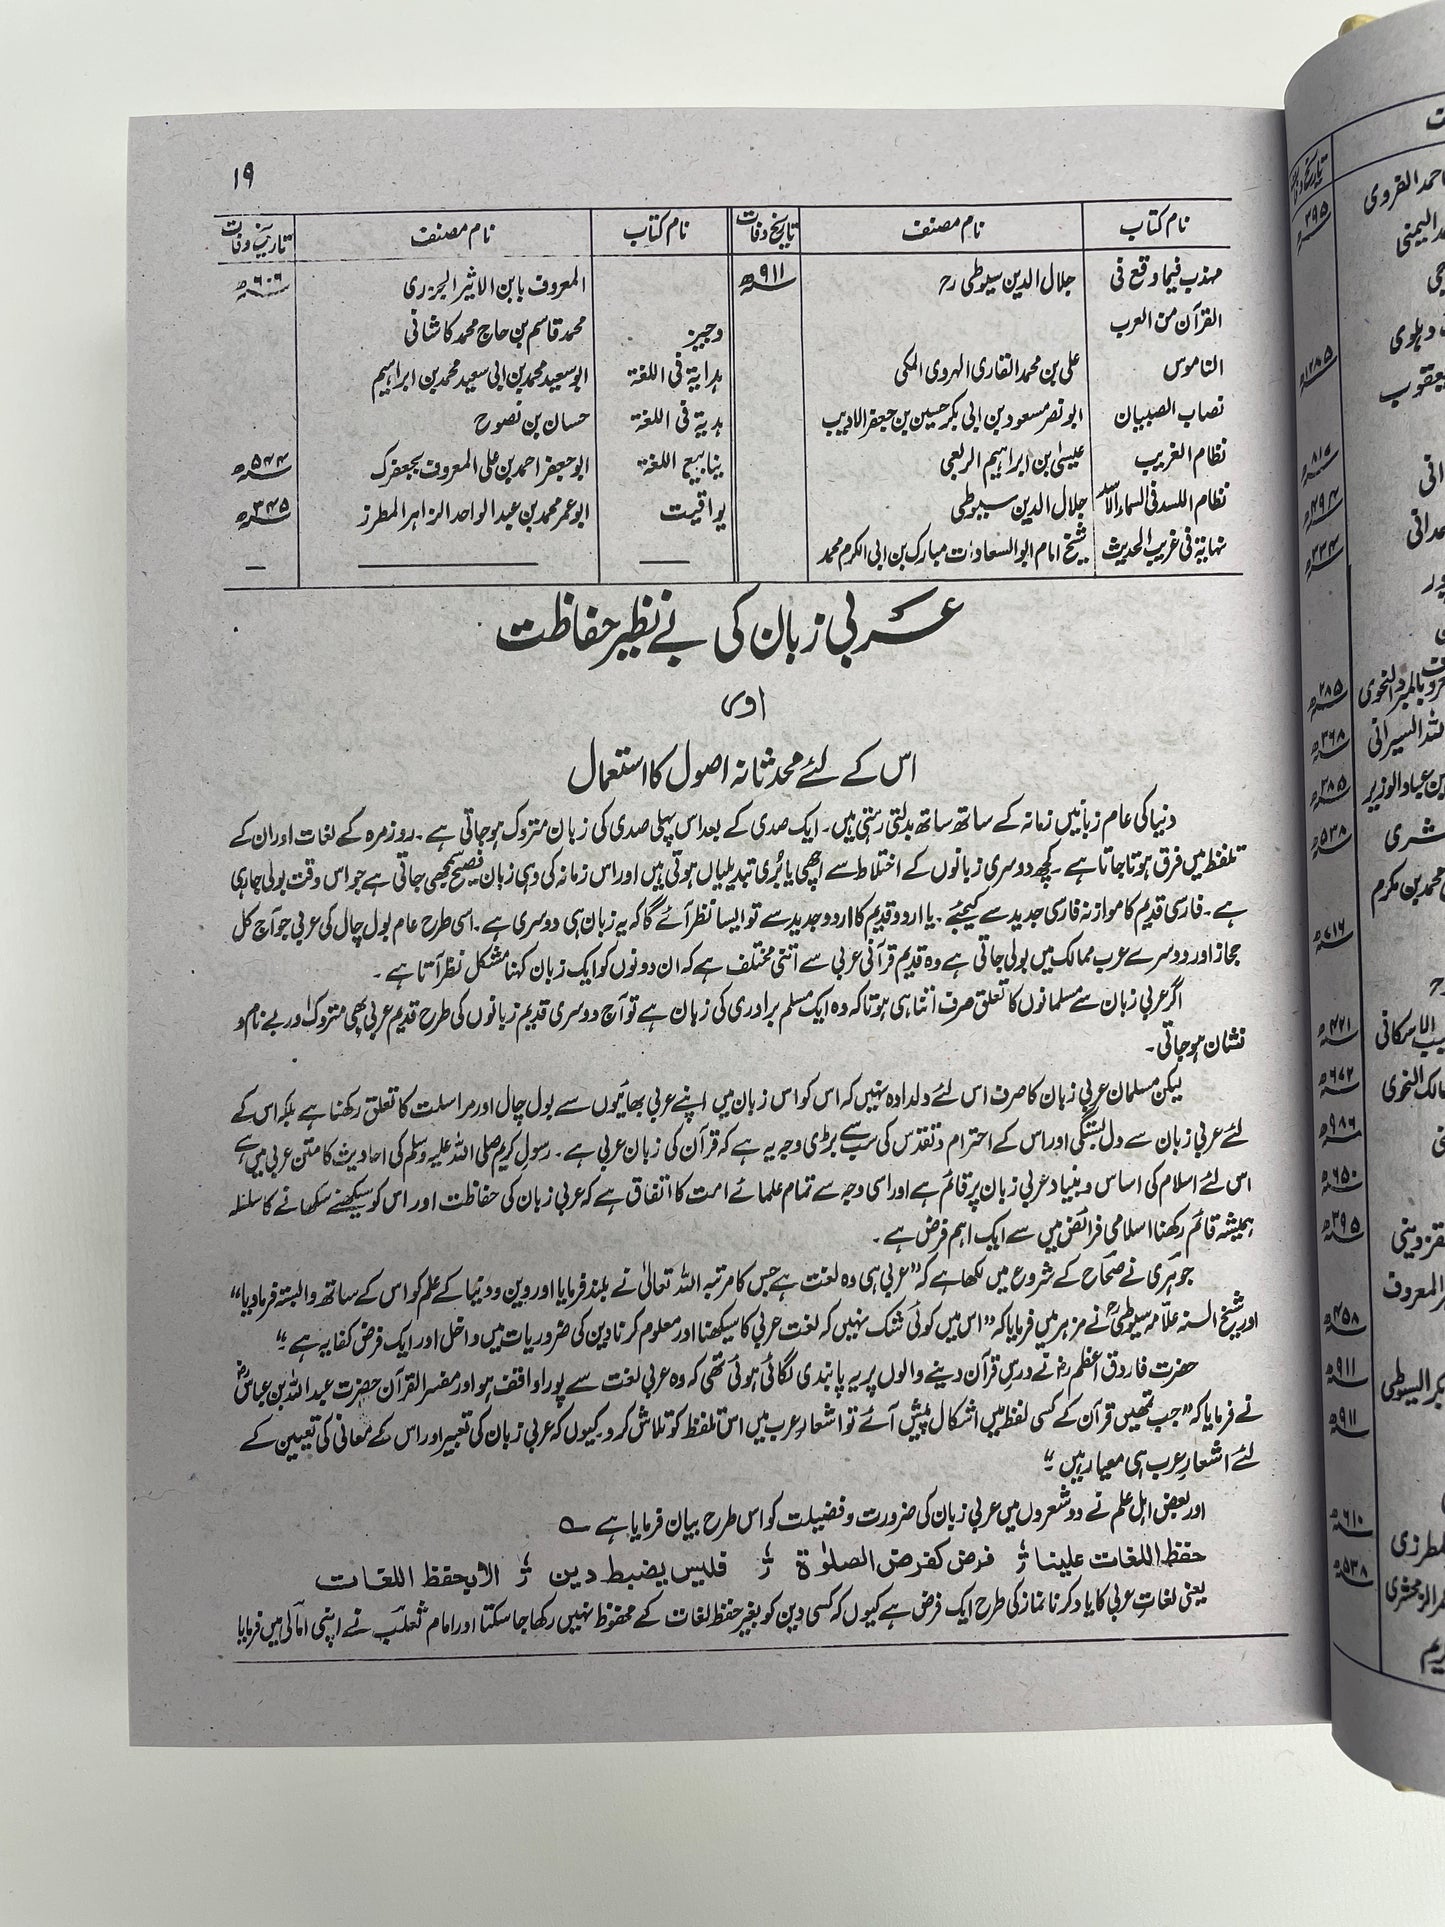 ۱۹
نام کتاب	نام مصنف	تاریخ وفات	نام کتاب	نام مصنف	تاریخ وفات
مہذب فیما وقع فی	جلال الدین سیوطی رح	۹۱۱ھ		المعروف بابن الاثیر الجزری	۶۰۶ھ
القرآن من العرب			وجیز	محمد قاسم بن حاج محمد کاشانی
الناموس	علی بن محمد القاری الہروی المکی		ہدایۃ فی اللغۃ	ابو سعید محمد بن ابی سعید محمد بن ابراہیم
نصاب الصبیان	ابو نصر مسعود بن ابی بکر حسین بن جعفر الادیب		ہدیۃ فی اللغۃ	حسان بن نصوح
نظام الغریب	عیسیٰ بن ابراہیم الربعی		ینابیع اللغۃ	ابو جعفر احمد بن علی المعروف بجعفرک	۵۴۴ھ
نظام اللسد فی اسماء الاسد	جلال الدین سیوطی		یواقیت	ابو عمر محمد بن عبد الواحد الزاہر المطرز	۳۴۵ھ
نہایۃ فی غریب الحدیث	شیخ امام ابو السعادات مبارک بن ابی الکرم محمد		—	—	—
عربی زبان کی بے نظیر حفاظت
اور
اس کے لئے محدثانہ اصول کا استعمال
دنیا کی عام زبانیں زمانہ کے ساتھ ساتھ بدلتی رہتی ہیں۔ ایک صدی کے بعد اس پہلی صدی کی زبان متروک ہو جاتی ہے۔ روزمرہ کے لغات اور ان کے
تلفظ میں فرق ہوتا جاتا ہے۔ کچھ دوسری زبانوں کے اختلاط سے اچھی یا بُری تبدیلیاں ہوتی ہیں اور اس زمانہ کی وہی زبان فصیح سمجھی جاتی ہے جو اس وقت بولی جا رہی
ہے۔ فارسی قدیم کا موازنہ فارسی جدید سے کیجئے۔ یا اردو قدیم کا اردو جدید سے تو ایسا نظر آئے گا کہ یہ زبان ہی دوسری ہے۔ اسی طرح عام بول چال کی عربی جو آج کل
حجاز اور دوسرے عرب ممالک میں بولی جاتی ہے وہ قدیم قرآنی عربی سے اتنی مختلف ہے کہ ان دونوں کو ایک زبان کہنا مشکل نظر آتا ہے۔
اگر عربی زبان سے مسلمانوں کا تعلق صرف اتنا ہی ہوتا کہ وہ ایک مسلم برادری کی زبان ہے تو آج دوسری قدیم زبانوں کی طرح قدیم عربی بھی متروک اور بے نام و
نشان ہو جاتی۔
لیکن مسلمان عربی زبان کا صرف اس لئے دلدادہ نہیں کہ اس کو اس زبان میں اپنے عربی بھائیوں سے بول چال اور مراسلت کا تعلق رکھنا ہے بلکہ اس کے
لئے عربی زبان سے دل بستگی اور اس کے احترام و تقدس کی سب سے بڑی وجہ یہ ہے کہ قرآن کی زبان عربی ہے۔ رسول کریم صلی اللہ علیہ وسلم کی احادیث کا متن عربی میں ہے
اس لئے اسلام کی اساس و بنیاد عربی زبان پر قائم ہے اور اسی وجہ سے تمام علمائے امت کا اتفاق ہے کہ عربی زبان کی حفاظت اور اس کو سیکھنے سکھانے کا سلسلہ
ہمیشہ قائم رکھنا اسلامی فرائض میں سے ایک اہم فرض ہے۔
جوہری نے صحاح کے شروع میں لکھا ہے کہ "عربی ہی وہ لغت ہے جس کا مرتبہ اللہ تعالیٰ نے بلند فرمایا اور دین و دنیا کے علم کو اس کے ساتھ وابستہ فرما دیا"
اور شیخ السنہ علّامہ سیوطیؒ نے مزہر میں فرمایا کہ "اس میں کوئی شک نہیں کہ لغت عربی کا سیکھنا اور معلوم کرنا دین کی ضروریات میں داخل اور ایک فرض کفایہ ہے۔"
حضرت فاروق اعظم رضؓ نے درس قرآن دینے والوں پر یہ پابندی لگائی ہوئی تھی کہ وہ عربی لغت سے پورا واقف ہو اور مفسر القرآن حضرت عبد اللہ بن عباسؓ
نے فرمایا کہ "جب تمھیں قرآن کے کسی لفظ میں اشکال پیش آئے تو اشعار عرب میں اس تلفظ کو تلاش کرو۔ کیوں کہ عربی زبان کی تعبیر اور اس کے معانی کی تعیین کے
لئے اشعارِ عرب ہی معیار ہیں۔"
اور بعض اہل علم نے دو شعروں میں عربی زبان کی ضرورت و فضیلت کو اس طرح بیان فرمایا ہے ؎
حفظ اللغات علینا ؛ فرض کفرض الصلوٰۃ ؛ فلیس یضبط دین ؛ الا بحفظ اللغات
یعنی لغات عربی کا یاد کرنا نماز کی طرح ایک فرض ہے کیوں کہ کسی دین کو بغیر حفظ لغات کے محفوظ نہیں رکھا جا سکتا اور امام ثعلب نے اپنی امالی میں فرمایا